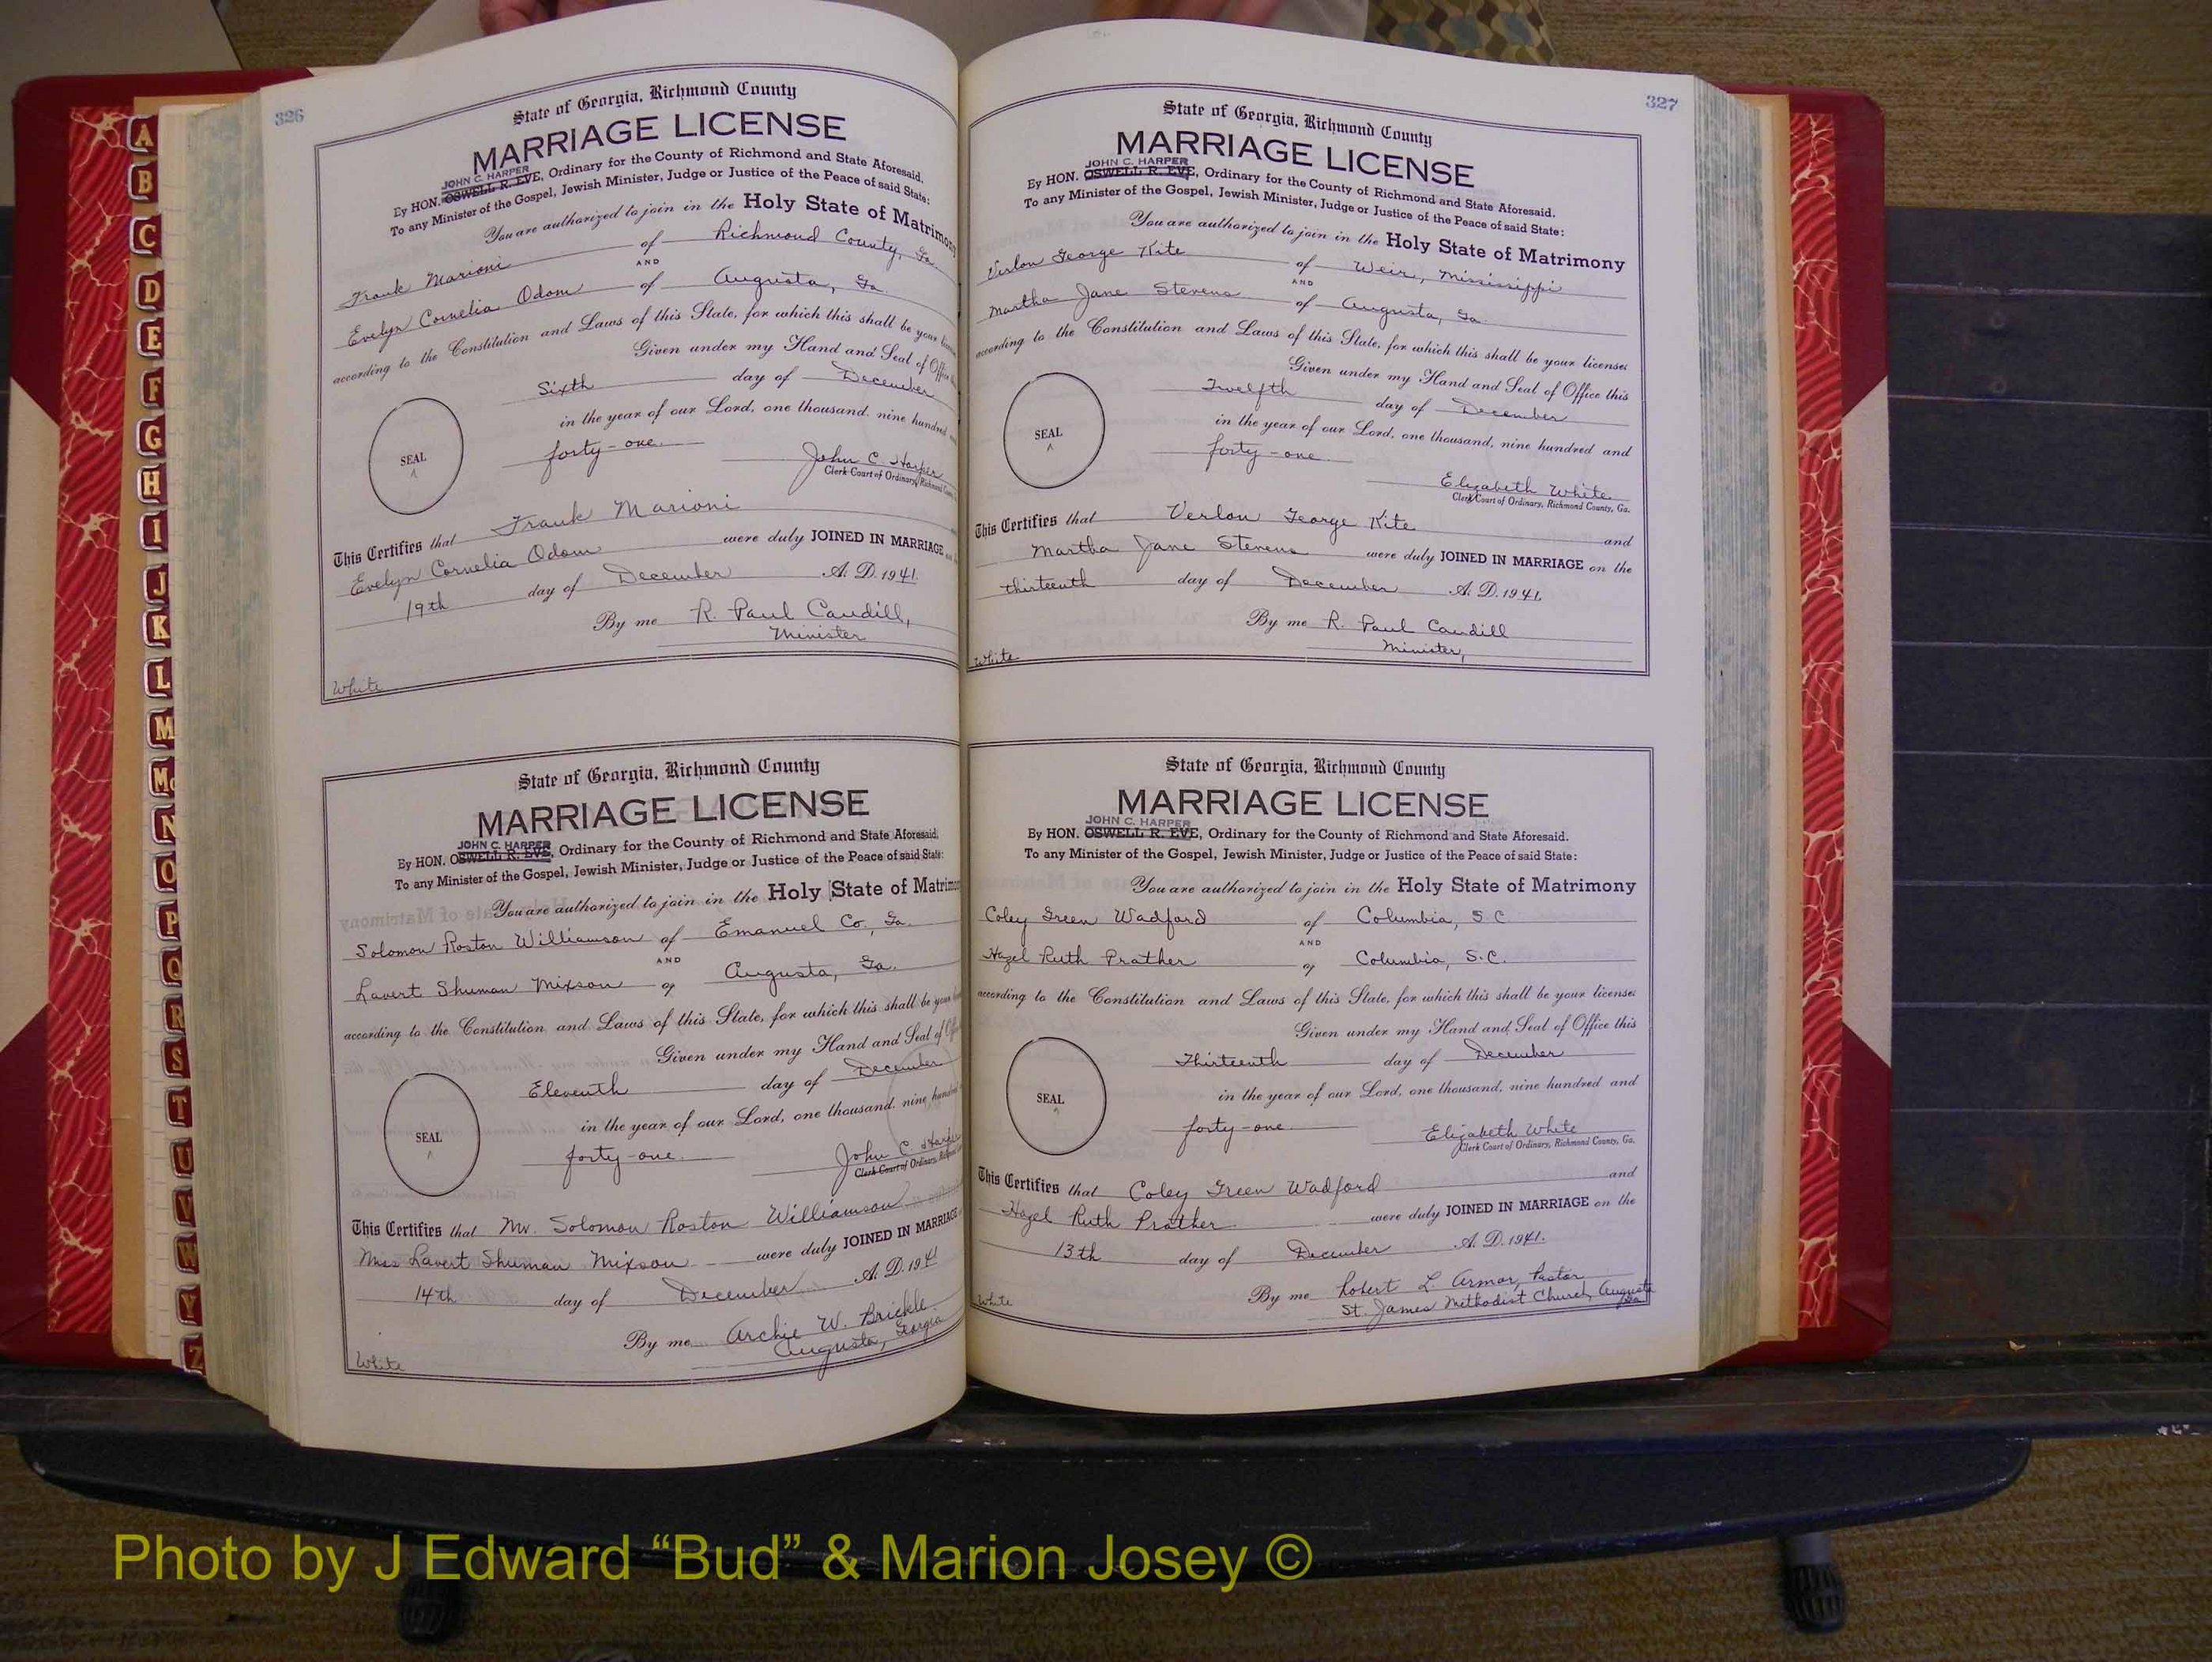 326
State of Georgia, Richmond County
MARRIAGE LICENSE
JOHN C. HARPER
By HON. OSWELL R. EVE, Ordinary for the County of Richmond and State Aforesaid.
To any Minister of the Gospel, Jewish Minister, Judge or Justice of the Peace of said State:
You are authorized to join in the Holy State of Matrimony
Frank Marioni of Richmond County, Ga.
AND
Evelyn Cornelia Odom of Augusta, Ga.
according to the Constitution and Laws of this State, for which this shall be your
Given under my Hand and Seal of Office
Sixth day of December
in the year of our Lord, one thousand, nine hundred
forty-one.
SEAL
John C. Harper
Clerk Court of Ordinary, Richmond
This Certifies that Frank Marioni
Evelyn Cornelia Odom were duly JOINED IN MARRIAGE
19th day of December A. D. 1941.
By me R. Paul Caudill,
Minister
White
State of Georgia, Richmond County
MARRIAGE LICENSE
JOHN C. HARPER
By HON. OSWELL R. EVE, Ordinary for the County of Richmond and State Aforesaid.
To any Minister of the Gospel, Jewish Minister, Judge or Justice of the Peace of said State:
You are authorized to join in the Holy State of Matrimony
Solomon Roston Williamson of Emanuel Co., Ga.
AND
Lavert Shuman Mixson of Augusta, Ga.
according to the Constitution and Laws of this State, for which this shall be your
Given under my Hand and Seal of
Eleventh day of December
in the year of our Lord, one thousand, nine hundred
forty-one.
SEAL
John C. Harper
Clerk Court of Ordinary,
This Certifies that Mr. Solomon Roston Williamson
Miss Lavert Shuman Mixson were duly JOINED IN MARRIAGE
14th day of December A. D. 1941
By me Archie W. Brickle
Augusta, Georgia
White
327
State of Georgia, Richmond County
MARRIAGE LICENSE
JOHN C. HARPER
By HON. OSWELL R. EVE, Ordinary for the County of Richmond and State Aforesaid.
To any Minister of the Gospel, Jewish Minister, Judge or Justice of the Peace of said State:
You are authorized to join in the Holy State of Matrimony
Verlon George Kite of Weir, Mississippi
AND
Martha Jane Stevens of Augusta, Ga.
according to the Constitution and Laws of this State, for which this shall be your license:
Given under my Hand and Seal of Office this
Twelfth day of December
in the year of our Lord, one thousand, nine hundred and
forty-one
SEAL
Elizabeth White
Clerk Court of Ordinary, Richmond County, Ga.
This Certifies that Verlon George Kite and
Martha Jane Stevens were duly JOINED IN MARRIAGE on the
thirteenth day of December A. D. 1941.
By me R. Paul Caudill
Minister,
White
State of Georgia, Richmond County
MARRIAGE LICENSE
JOHN C. HARPER
By HON. OSWELL R. EVE, Ordinary for the County of Richmond and State Aforesaid.
To any Minister of the Gospel, Jewish Minister, Judge or Justice of the Peace of said State:
You are authorized to join in the Holy State of Matrimony
Coley Green Wadford of Columbia, S.C
AND
Hazel Ruth Prather of Columbia, S.C.
according to the Constitution and Laws of this State, for which this shall be your license:
Given under my Hand and Seal of Office this
Thirteenth day of December
in the year of our Lord, one thousand, nine hundred and
forty-one.
SEAL
Elizabeth White
Clerk Court of Ordinary, Richmond County, Ga.
This Certifies that Coley Green Wadford and
Hazel Ruth Prather were duly JOINED IN MARRIAGE on the
13th day of December A. D. 1941.
By me Robert L. Armor, Pastor
St. James Methodist Church, Augusta
Ga.
White
A
B
C
D
E
F
G
H
I
J
K
L
M
Mc
N
O
P
Q
R
S
T
U
V
W
Y
Z
Photo by J Edward “Bud” & Marion Josey ©